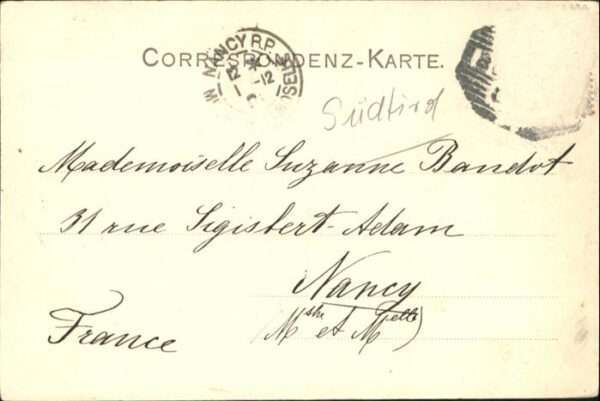 CORRESPONDENZ-KARTE.
NANCY R.P.
12
-12
Südtirol
Mademoiselle Suzanne Bandot
31 rue Sigisbert-Adam
Nancy
(Mthe et Melle)
France